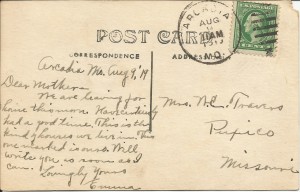 POST CARD
CORRESPONDENCE
ADDRESS
ARCADIA
AUG
9
AM
MO.
Arcadia Mo. Aug 9, '19
Dear Mother:
We are leaving for
home this morn. Have certainly
had a good time. This is the
kind of houses we live in. This
one marked is ours. Will
write you as soon as I
can. Lovingly Yours
Emma
Mrs. N.E. Travers
Missouri